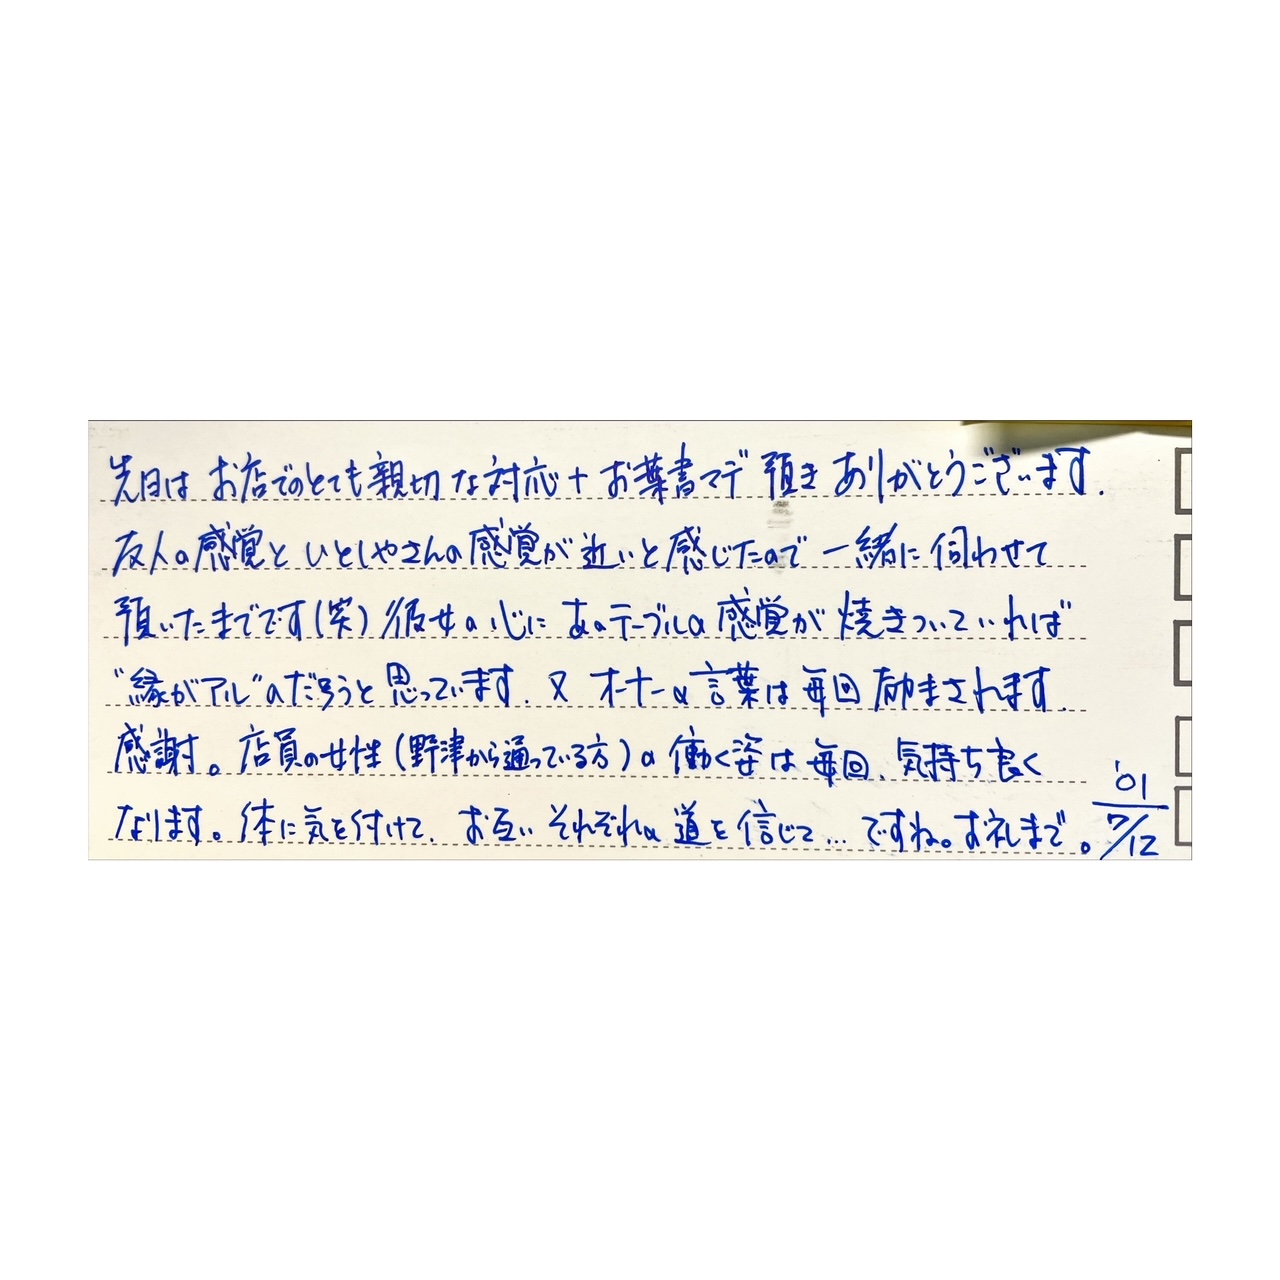 先日は お店でのとても親切な対応+お葉書マデ 頂き ありがとうございます.
友人の感覚と ひとしやさんの感覚が 近いと感じたので 一緒に伺わせて
頂いたまでです(笑) 彼女の心に あのテーブルの感覚が 焼きついていれば
"縁がアル"のだろうと思っています. 又 オーナーの言葉は毎回 励まされます.
感謝。店員の女性(野津から通っている方)の 働く姿は毎回、気持ち良く
なります。体に気を付けて. お互い それぞれの 道を信じて…ですね。お礼まで。
'01 7/12